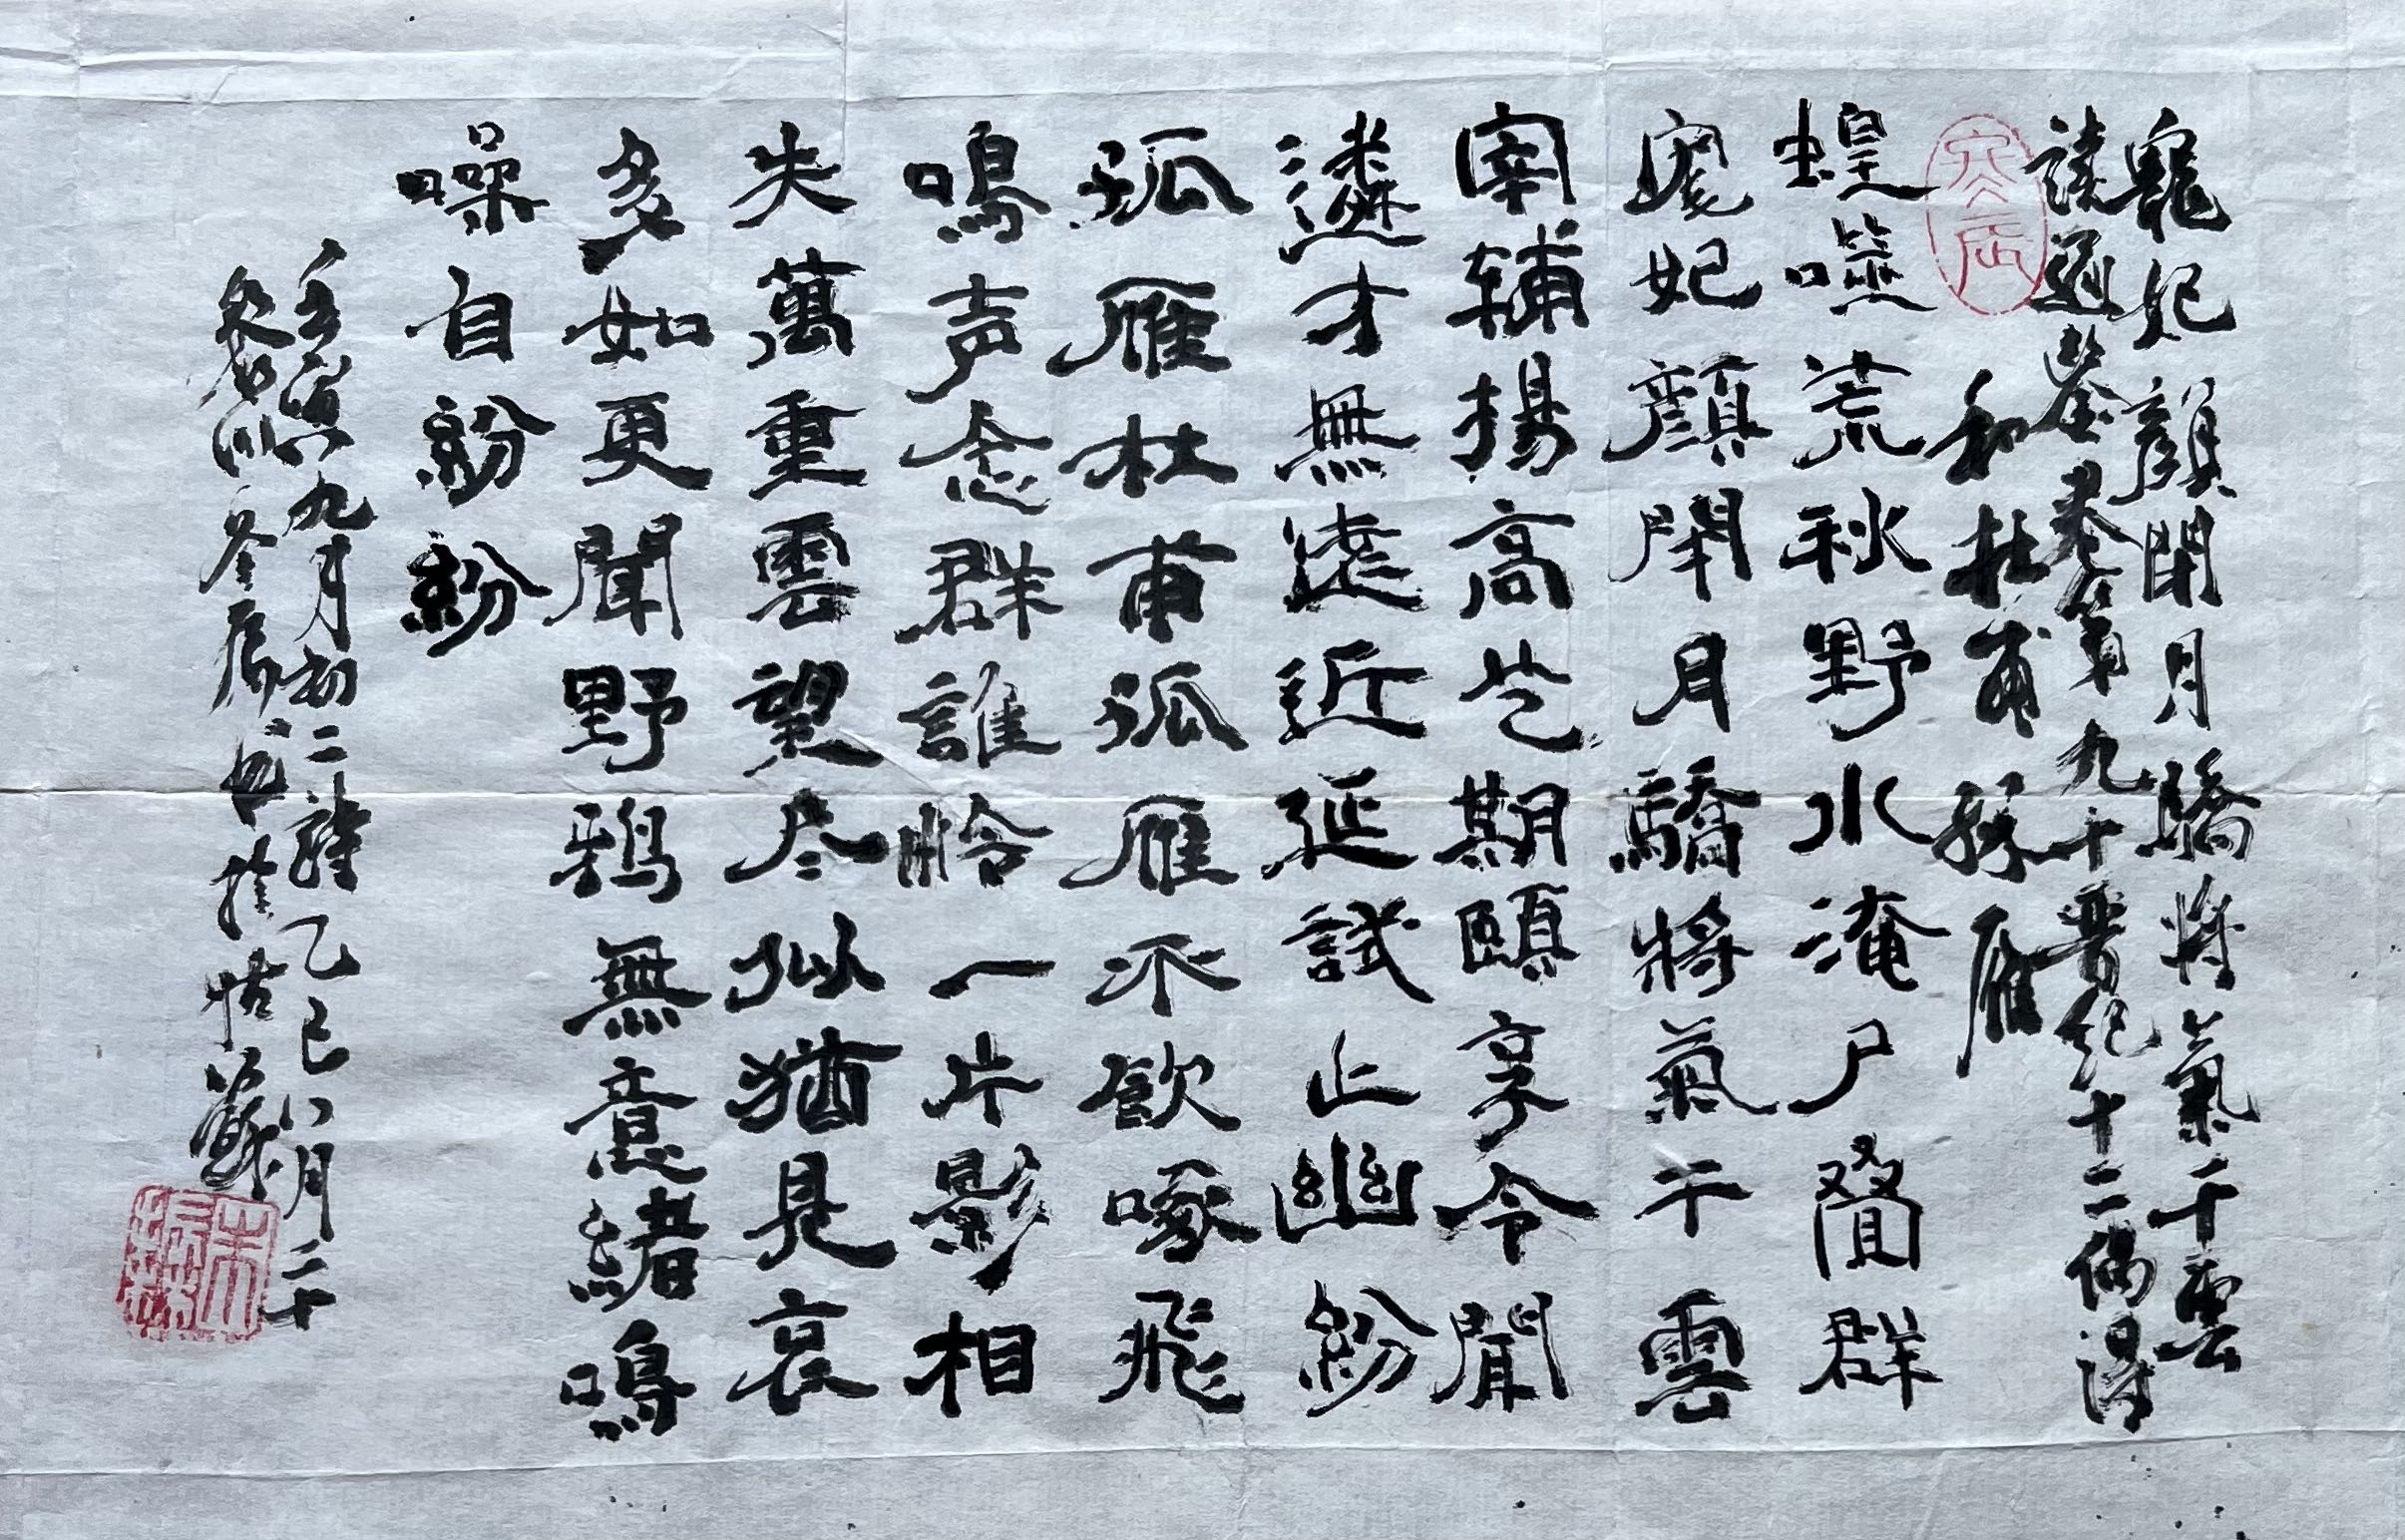 寵妃顏閉月驕將氣干雲
讀通鑒卷第九十晉紀十二偶得
和杜甫孤雁
蝗噬荒秋野水淹尸疊群
寵妃顏閉月驕將氣干雲
宰輔揚高芒期頤享令聞
遴才無遠近延試止幽紛
孤雁杜甫孤雁不飲啄飛
鳴声念群誰怜一片影相
失萬重雲望尽似猶見哀
多如更聞野鴉無意緒鳴
噪自紛紛
壬寅九月初二諱乙巳八月二十